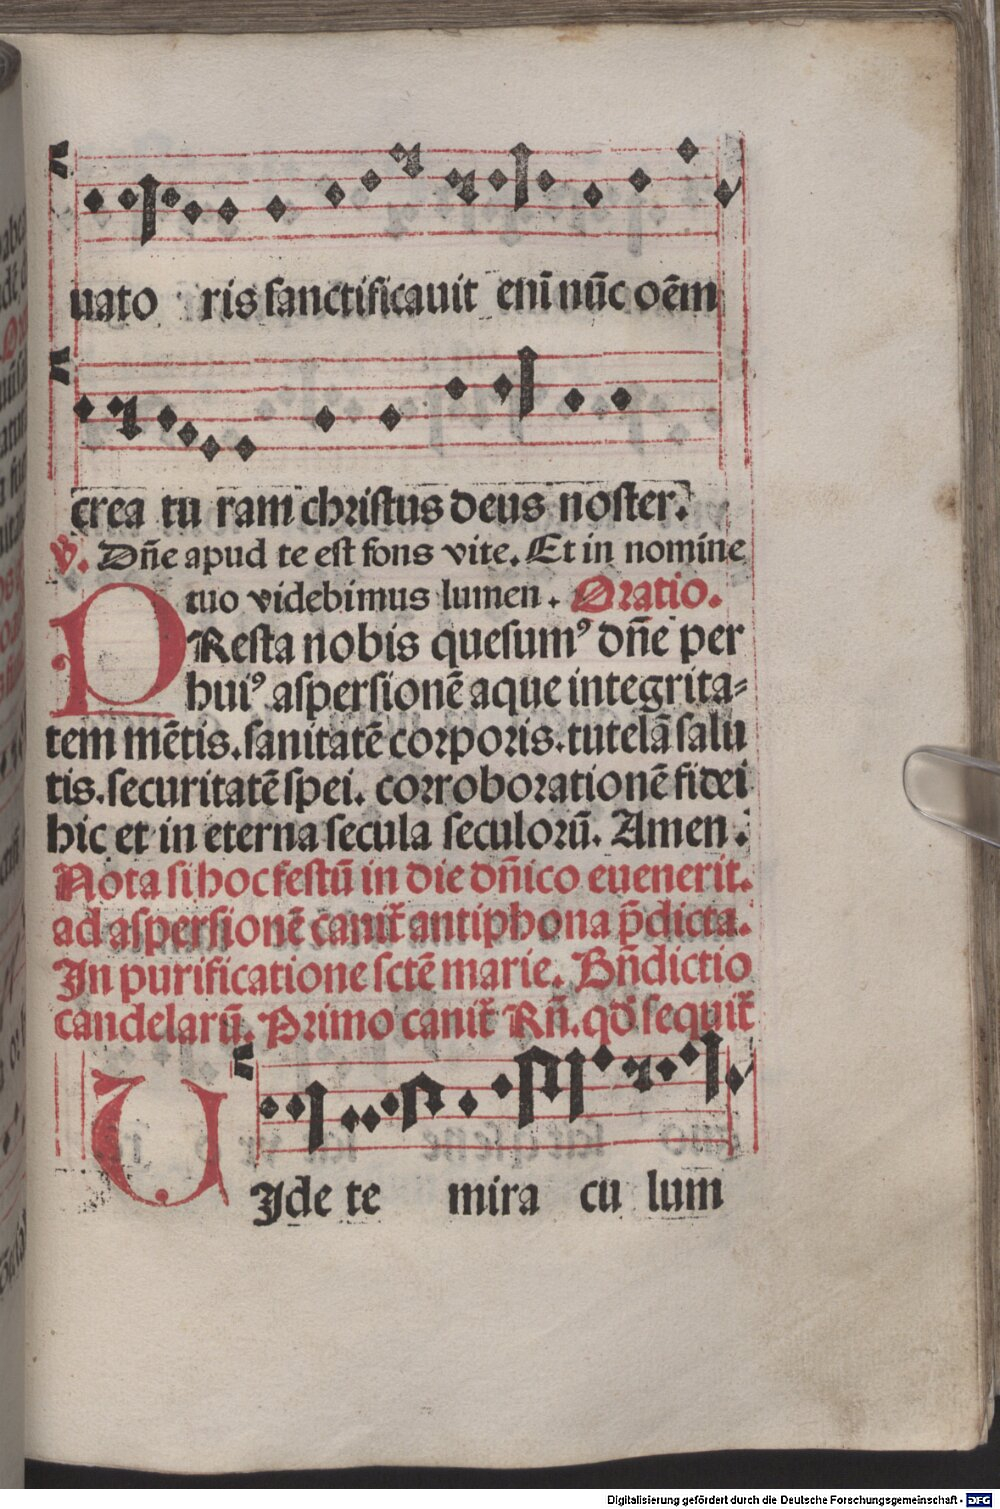 uato ris sanctificauit eni nūc oēm
crea tu ram christus deus noster.
V. Dn̄e apud te est fons vite. Et in nomine
tuo videbimus lumen. Oratio.
PResta nobis quesumꝰ dn̄e per
huiꝰ aspersionē aque integrita⸗
tem mētis. sanitatē corporis. tutelā salu
tis. securitatē spei. corroborationē fidei
hic et in eterna secula seculorū. Amen.
Nota si hoc festū in die dn̄ico euenerit.
ad aspersionē canit᷑ antiphona p̄dicta.
In purificatione sctē marie. Bn̄dictio
candelarū. Primo canit᷑ Rn̄. qd̄ sequit᷑
UIde te mira cu lum
Digitalisierung gefördert durch die Deutsche Forschungsgemeinschaft - DFG